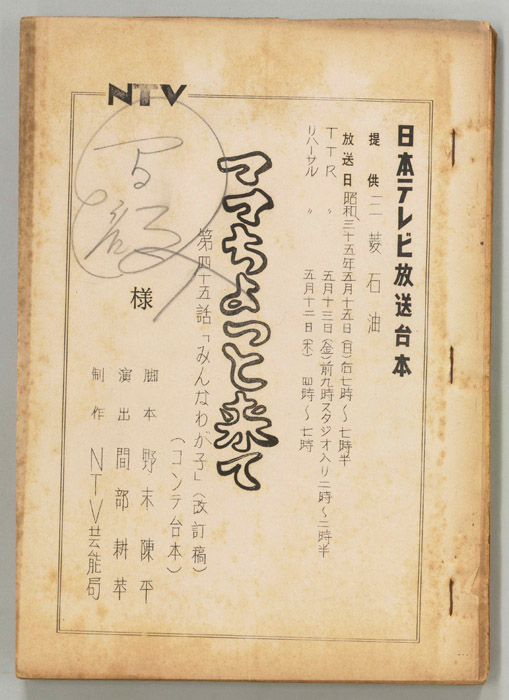 NTV
日本テレビ放送台本
提供 三菱石油
放送日 昭和三十五年五月十五日(日)右七時〜七時半
TTR 〃 五月十三日(金)前九時スタジオ入り二時〜二時半
リハーサル 〃 五月十二日(木)四時〜七時
ママちょっと来て
第四十五話「みんなわが子」(改訂稿)
(コンテ台本)
様
脚本 野末陳平
演出 間部耕苹
制作 NTV芸能局